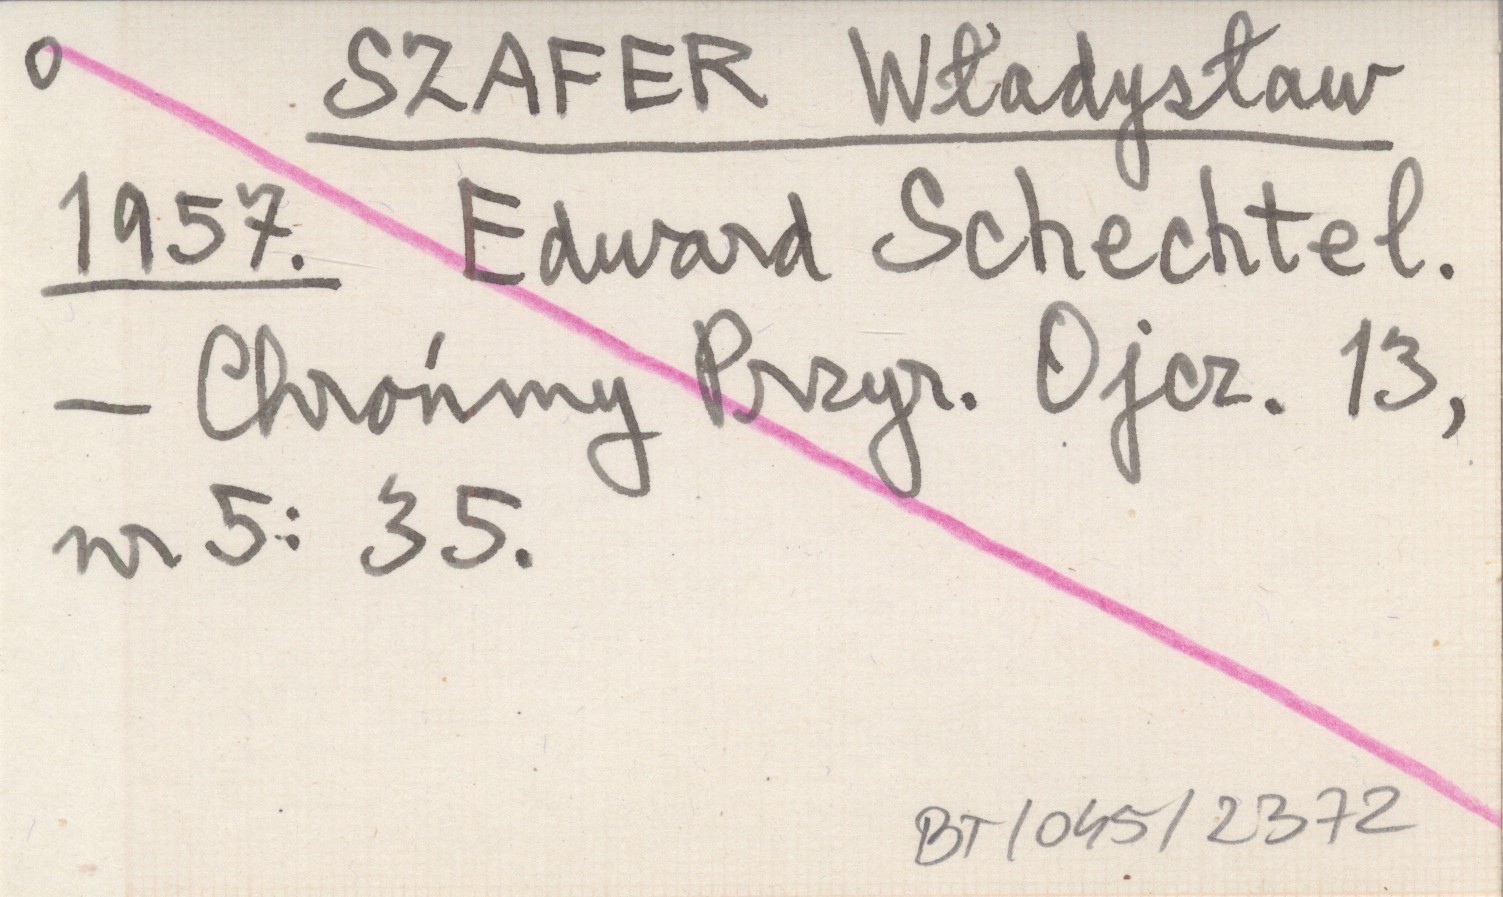 o SZAFER Władysław
1957. Edward Schechtel.
— Chrońmy Przyr. Ojcz. 13,
nr 5: 35.
BT/045/2372